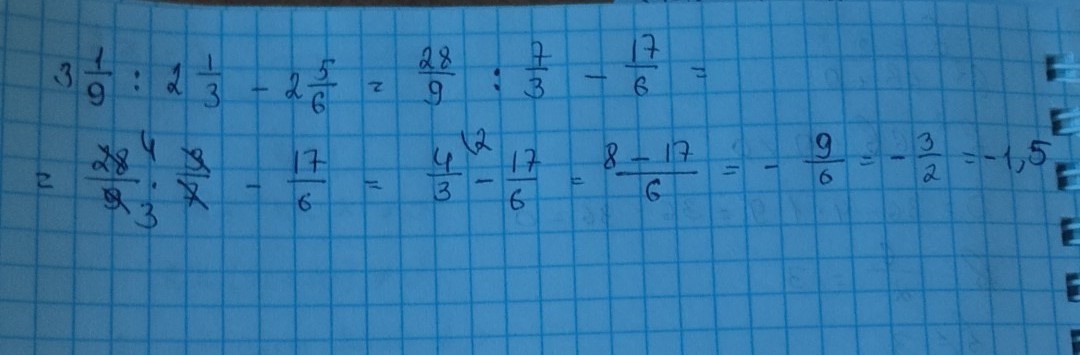 3 1/9 : 2 1/3 - 2 5/6 = 28/9 : 7/3 - 17/6 =
= 28/9 · 3/7 - 17/6 = 4/3 - 17/6 = (8 - 17)/6 = - 9/6 = - 3/2 = -1,5